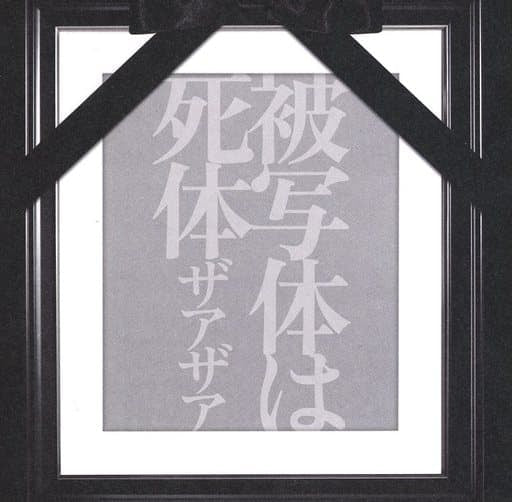 被写体は
死体ザアザア